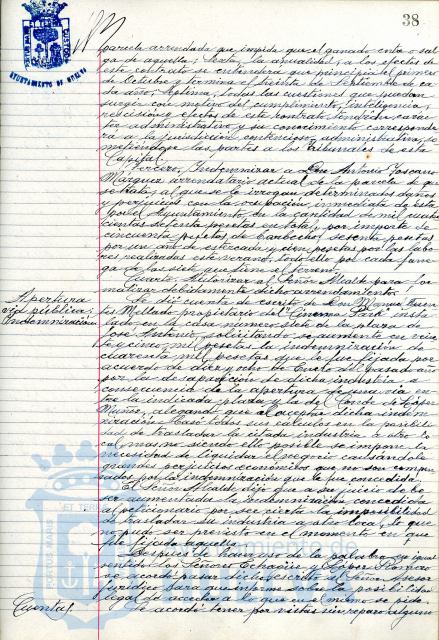 38
AYUNTAMIENTO DE HUELVA
parcela arrendada que impida que el ganado entre o sal-
ga de aquella; Sexta, la anualidad, a los efectos de
este contrato se entenderá que principia el primero
de Octubre y termina el treinta de Septiembre de ca-
da año; Séptima, todas las cuestiones que puedan
surgir con motivo del cumplimiento, inteligencia,
rescisión y efectos de este contrato tendrán carác-
ter administrativo y su conocimiento corresponde-
rá a la jurisdicción contencioso administrativa, so-
metiéndose las partes a los Tribunales de esta
Capital.
Tercero, Indemnizar a Don Antonio Toscano
Márquez arrendatario actual de la parcela de que
se trata, al que se le irrogan determinados daños
y perjuicios con la ocupación inmediata de esta
por el Ayuntamiento en la cantidad de mil
cientas setenta pesetas en total, por importe de
cincuenta pesetas de barbecho, setenta pesetas
por un año de y cien pesetas por las labo-
res realizadas este verano, todo ello por cada fane-
ga de las siete que tiene el terreno.
Cuarto, Autorizar al Señor Alcalde para for-
malizar debidamente dicho arrendamiento.
Apertura
vía pública:
Indemnización
Se dió cuenta de escrito de Don Manuel
Mellado propietario del "Cinema Park" insta-
lado en la casa número siete de la plaza de
José Antonio, solicitando se aumente en vein-
te y cinco mil pesetas la indemnización de
cuarenta mil pesetas que le fue fijada por
acuerdo de diez y ocho de Enero del pasado año
por la desaparición de dicha industria a
consecuencia de la apertura de una vía en-
tre la indicada plaza y la de Conde de López
Muñoz, alegando que al aceptar dicha indem-
nización basó todos sus cálculos en la posibili-
dad de trasladar la citada industria a otro lo-
cal, mas no siendo ello posible se impone la
necesidad de liquidar el negocio causándole
grandes perjuicios económicos que no son compen-
sados por la indemnización que le fue concedida.
El Señor Alcalde dijo que a su juicio debe
ser aumentada la indemnización concedida
al peticionario por ser cierta la imposibilidad
de trasladar su industria a otro local, lo que
no pudo ser previsto en el momento en que
fue fijada aquella.
Después de hacer uso de la palabra en igual
sentido los Señores y López Romero
se acordó pasar dicho escrito al Señor Asesor
Jurídico para que informe sobre la posibilidad
legal de acceder a lo que en el mismo se pide.
Cuentas.
Se acordó tener por vistas sin reparo alguno